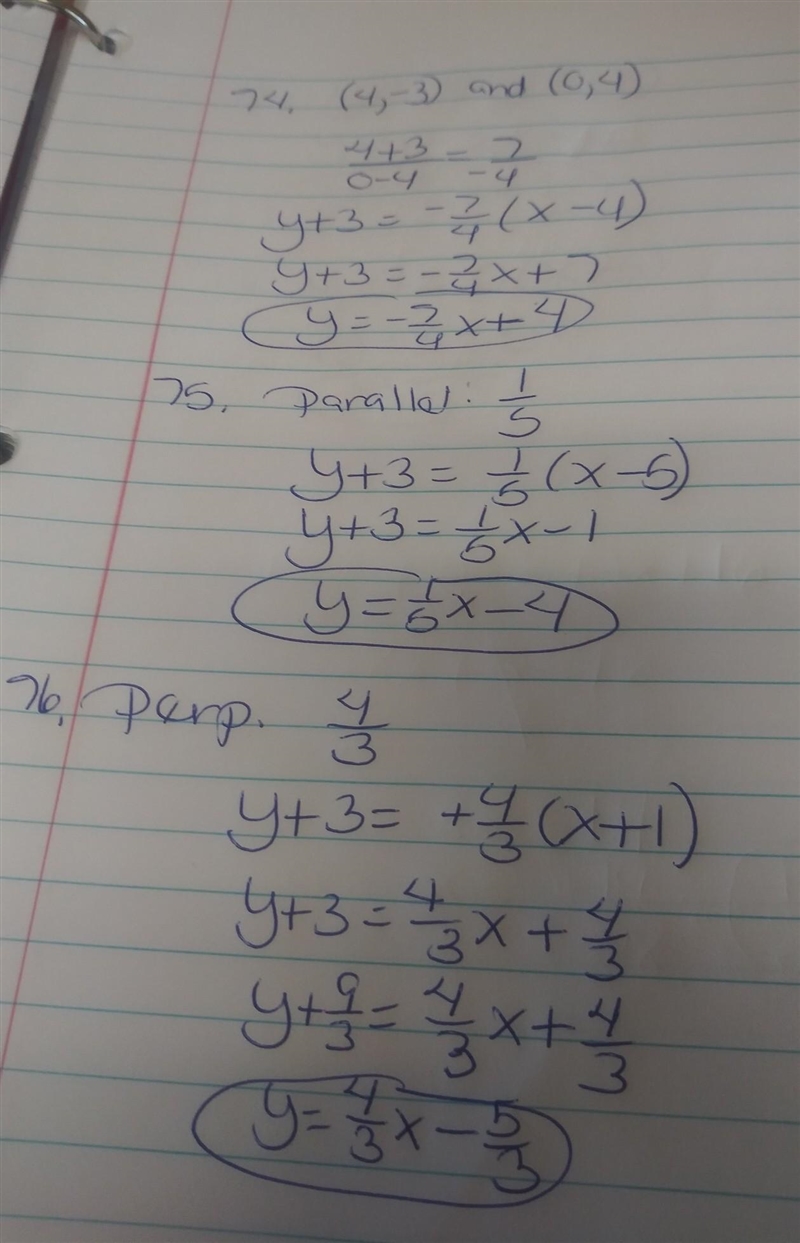 74. (4,-3) and (0,4)
4+3/0-4 = 7/-4
y+3 = -7/4(x-4)
y+3 = -7/4x+7
y = -7/4x+4
75. Parallel: 1/5
y+3 = 1/5(x-5)
y+3 = 1/5x-1
y = 1/5x-4
76. Perp. 4/3
y+3 = +4/3(x+1)
y+3 = 4/3x + 4/3
y+9/3 = 4/3x + 4/3
y = 4/3x - 5/3